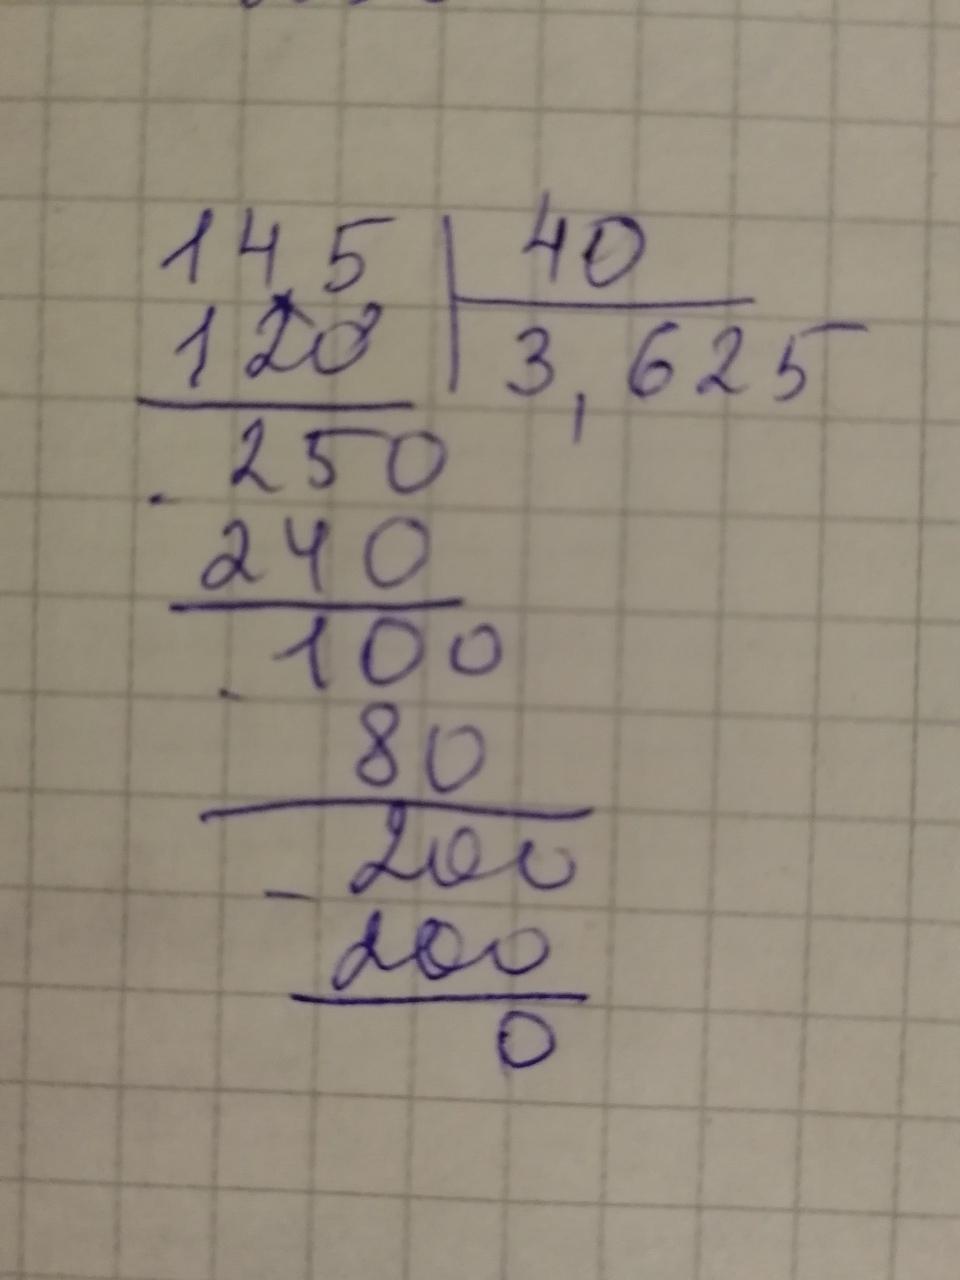 145 40
120 3,625
- 250
240
- 100
80
- 200
200
0